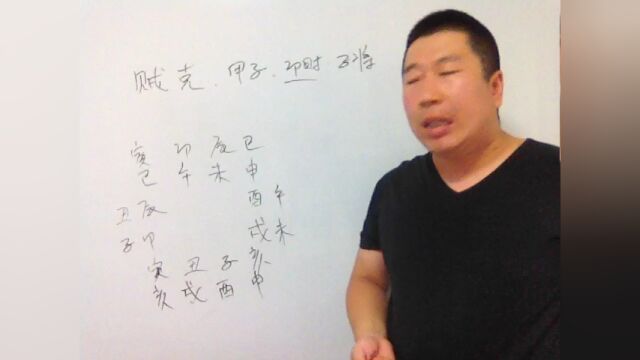 贼克.甲子.卯时 子将
寅 卯 辰 巳
巳 午 未 申
丑 辰 酉 午
子 卯 戌 未
寅 丑 子 亥
亥 戌 酉 申